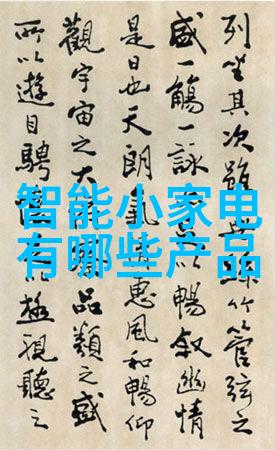 智能小家电
有哪些产品
列坐其次雖無絲竹管弦之
盛一觴一詠以暢敘幽情
是日也天朗氣惠風和暢仰
觀宇宙之大品類之盛
所以遊目騁以極視聽之